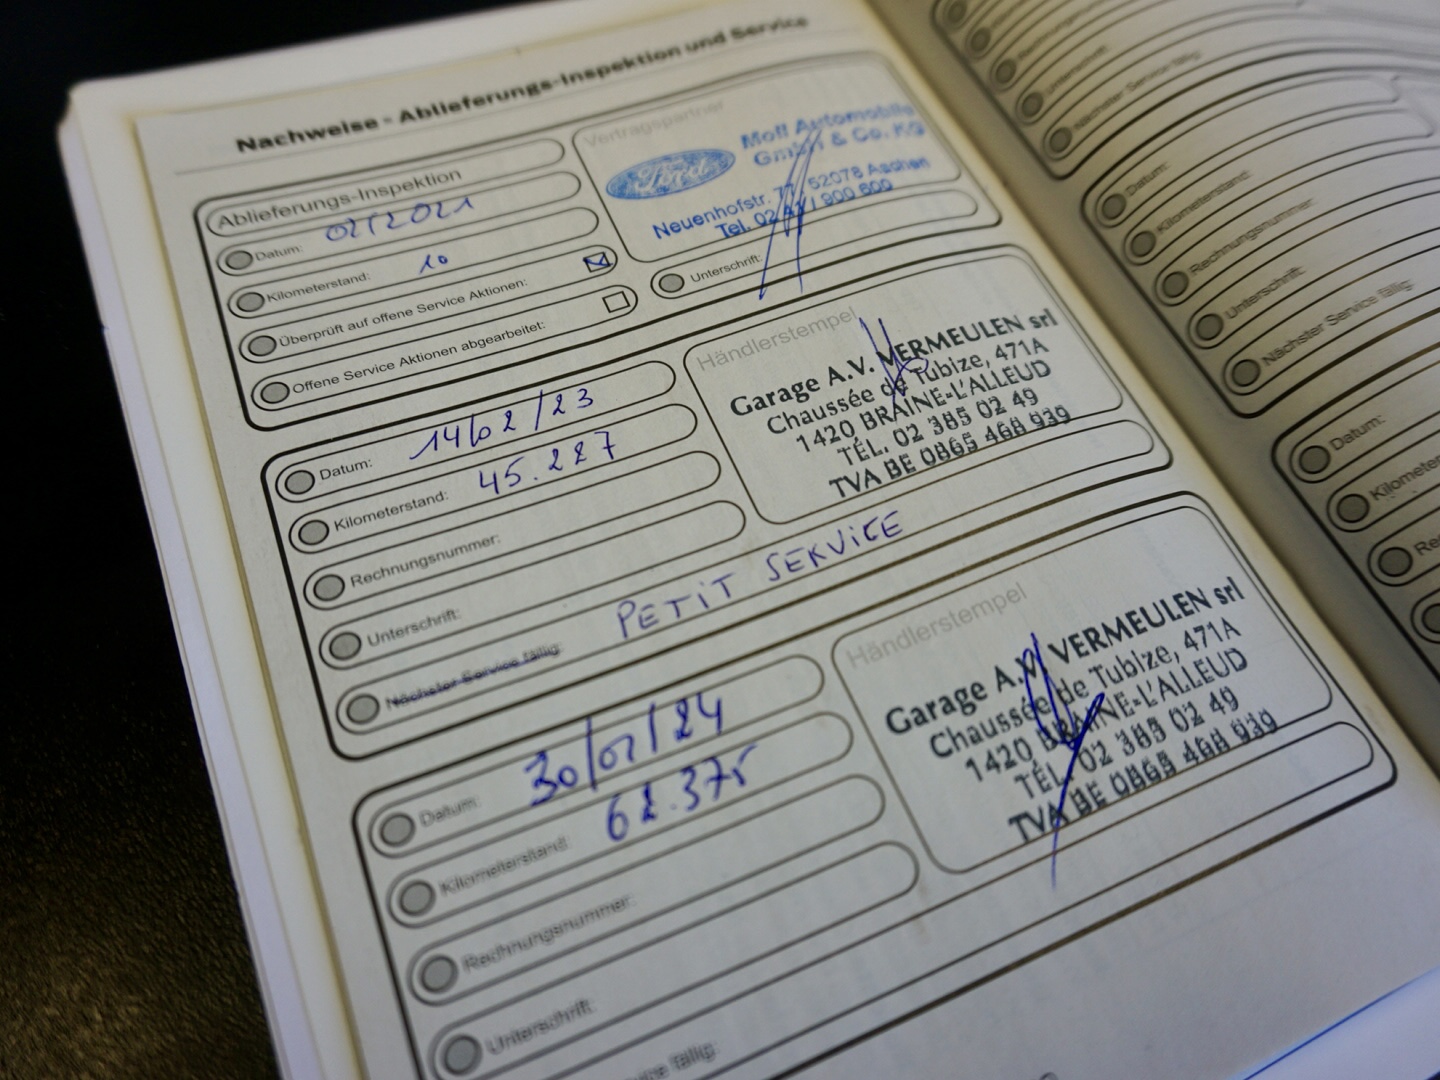 Nachweise - Ablieferungs-Inspektion und Service
Ablieferungs-Inspektion
Datum: 02/2021
Kilometerstand: 10
Überprüft auf offene Service Aktionen:
Offene Service Aktionen abgearbeitet:
Vertragspartner
Ford
Moll Automobile
GmbH & Co. KG
Neuenhofstr. 77, 52078 Aachen
Tel. 02 41 / 900 600
Unterschrift:
Datum: 14/02/23
Kilometerstand: 45.227
Rechnungsnummer:
Unterschrift:
Nächster Service fällig: PETIT SERVICE
Händlerstempel
Garage A.V. VERMEULEN srl
Chaussée de Tubize, 471A
1420 BRAINE-L'ALLEUD
TÉL. 02 385 02 49
TVA BE 0865 468 939
Datum: 30/01/24
Kilometerstand: 62.375
Rechnungsnummer:
Unterschrift:
fällig:
Händlerstempel
Garage A.V. VERMEULEN srl
Chaussée de Tubize, 471A
1420 BRAINE-L'ALLEUD
TÉL. 02 385 02 49
TVA BE 0865 468 939
Unterschrift:
Nächster Service fällig:
Datum:
Kilometerstand:
Rechnungsnummer:
Unterschrift:
Nächster Service fällig:
Datum: